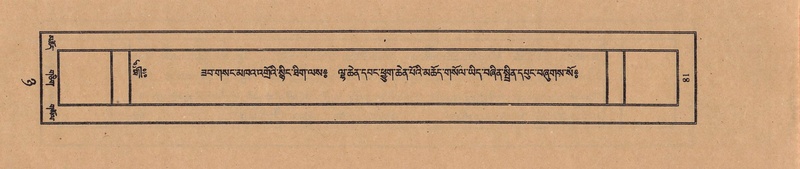 ཟབ་གསང་མཁའ་འགྲོའི་སྙིང་ཐིག་ལས༔ ལྷ་ཆེན་དབང་ཕྱུག་ཆེན་པོའི་མཆོད་གསོལ་ཡིད་བཞིན་སྤྲིན་དཔུང་བཞུགས་སོ༔